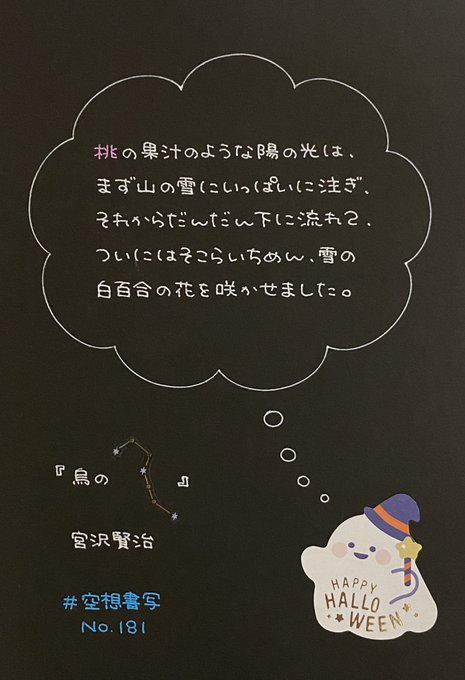 桃の果汁のような陽の光は、
まず山の雪にいっぱいに注ぎ、
それからだんだん下に流れて、
ついにはそこらいちめん、雪の
白百合の花を咲かせました。
『烏の　　』
宮沢賢治
#空想書写
No.181
HAPPY
HALLO
WEEN